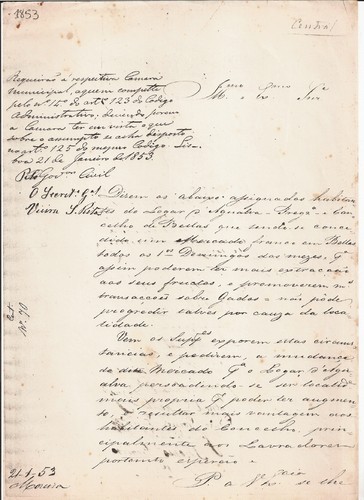 1853
Central
Requeirão á respectiva Camara
Municipal, a quem compette
pelo nº 14º do artº 123 do Codigo
Administrativo, devendo porem
a Camara ter em vista o que
sobre o assumpto se acha disposto
no artº 125 do mesmo Codigo. Lisboa
21 de Janeiro de 1853.
Civil
O Secretº Gal
Vieira
Dizem os abaixo assignados habitantes
do Logar d'Agualva Fregª e Concelho
de Bellas que tendo-se concedido
um Mercado franco em Bellas
todos os 1os Domingos das mezes, pª
assim poderem ter mais extracção
aos seus fructos, e promoverem mais
transacções sobre Gados e não pode
progredir talvés por cauza da localidade.
Vem os Suppes exporem estas circumstancias,
e pedirem, a mudança
do dito Mercado pª o Logar d'Agualva
persoadindo-se ser local
mais propria pª poder augmentar,
e resultar mais vantagem aos
habitantes do Concelho, principalmente
aos Lavradores
portanto
P a se lhe
Nº 70
21-1-53